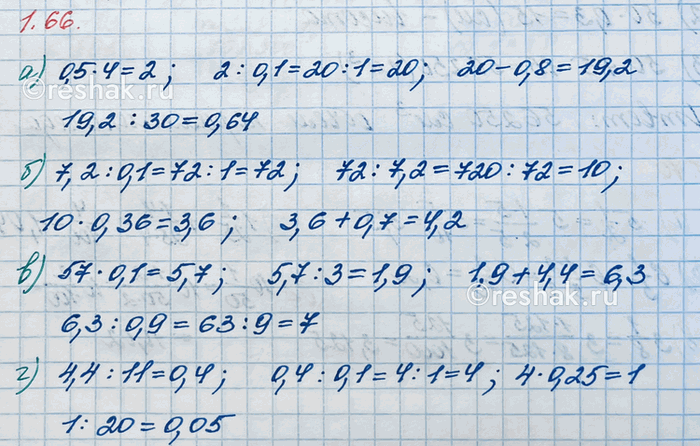 1.66.
а) 0,5·4=2; 2:0,1=20:1=20; 20-0,8=19,2
©reshak.ru
19,2:30=0,64
б) 7,2:0,1=72:1=72; 72:7,2=720:72=10;
10·0,36=3,6; 3,6+0,7=4,2
в) 57·0,1=5,7; 5,7:3=1,9; 1.9+4,4=6,3
©reshak.ru
6,3:0,9=63:9=7
г) 4,4:11=0,4; 0,4:0,1=4:1=4; 4·0,25=1
1:20=0,05